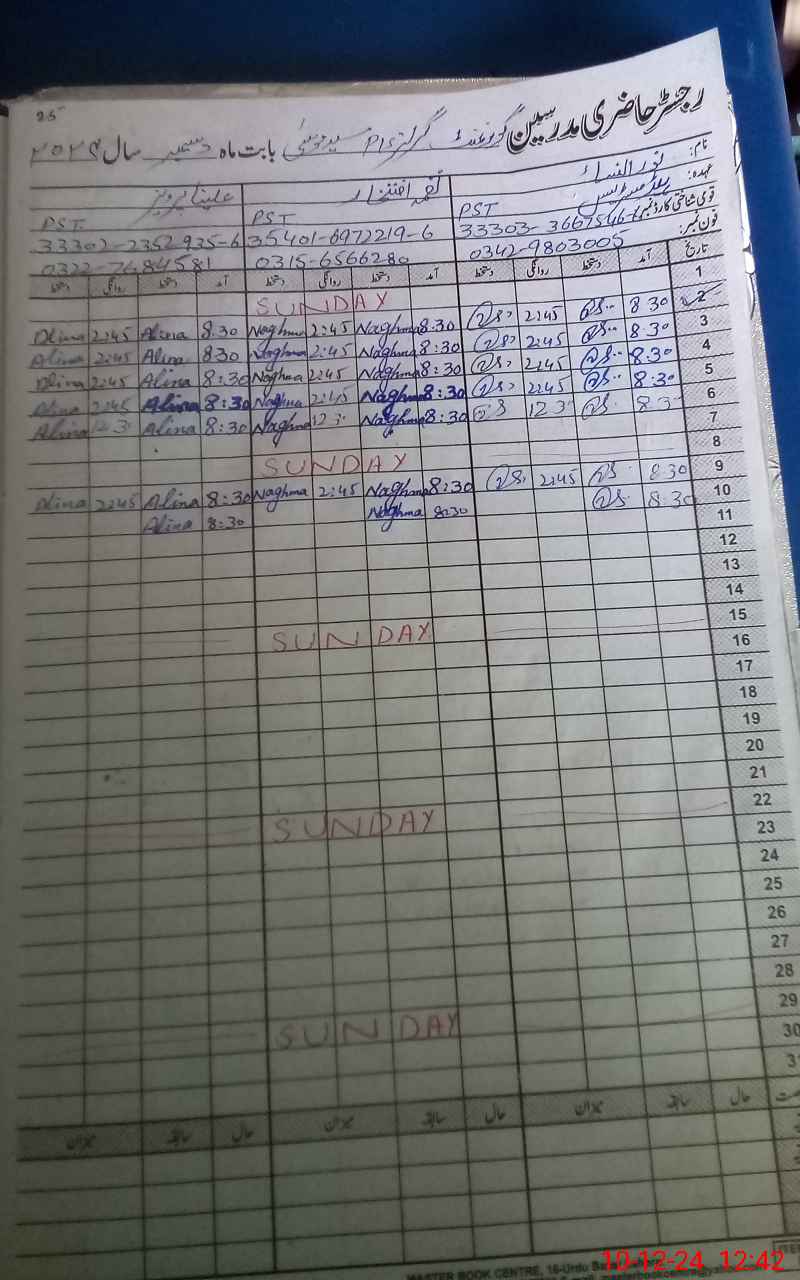 25
رجسٹر حاضری مدرسین گورنمنٹ گرلز P/S بابت ماہ دسمبر سال ۲۰۲۴
نام: نور النساء نغمہ افتخار علینا پرویز
عہدہ: PST PST PST
قومی شناختی کارڈ نمبر: 33303-3667546- 35401-6972219-6 33302-2352935-6
فون نمبر: 0342-9803005 0315-6566280 0322-7684581
تاریخ آمد دستخط روانگی دستخط آمد دستخط روانگی دستخط آمد دستخط روانگی دستخط
1 SUNDAY
2 8 30 2:45 8:30 Naghma 2:45 Naghma 8:30 Alina 2:45 Alina
3 8:30 2:45 8:30 Naghma 2:45 Naghma 8:30 Alina 2:45 Alina
4 8:30 2:45 8:30 Naghma 2:45 Naghma 8:30 Alina 2:45 Alina
5 8:30 2:45 8:30 Naghma 2:45 Naghma 8:30 Alina 2:45 Alina
6 8:3 12 3 8:30 Naghma 12 3 Naghma 8:30 Alina 12 3 Alina
7
8 SUNDAY
9 8:30 2:45 8:30 Naghma 2:45 Naghma 8:30 Alina 2:45 Alina
10 8:30 8:30 Naghma 8:30 Alina
11
12
13
14
15 SUNDAY
16
17
18
19
20
21
22 SUNDAY
23
24
25
26
27
28
29 SUNDAY
30
3
حال سابقہ میزان حال سابقہ میزان حال سابقہ میزان
MASTER BOOK CENTRE, 16-Urdu
10-12-24 12:42